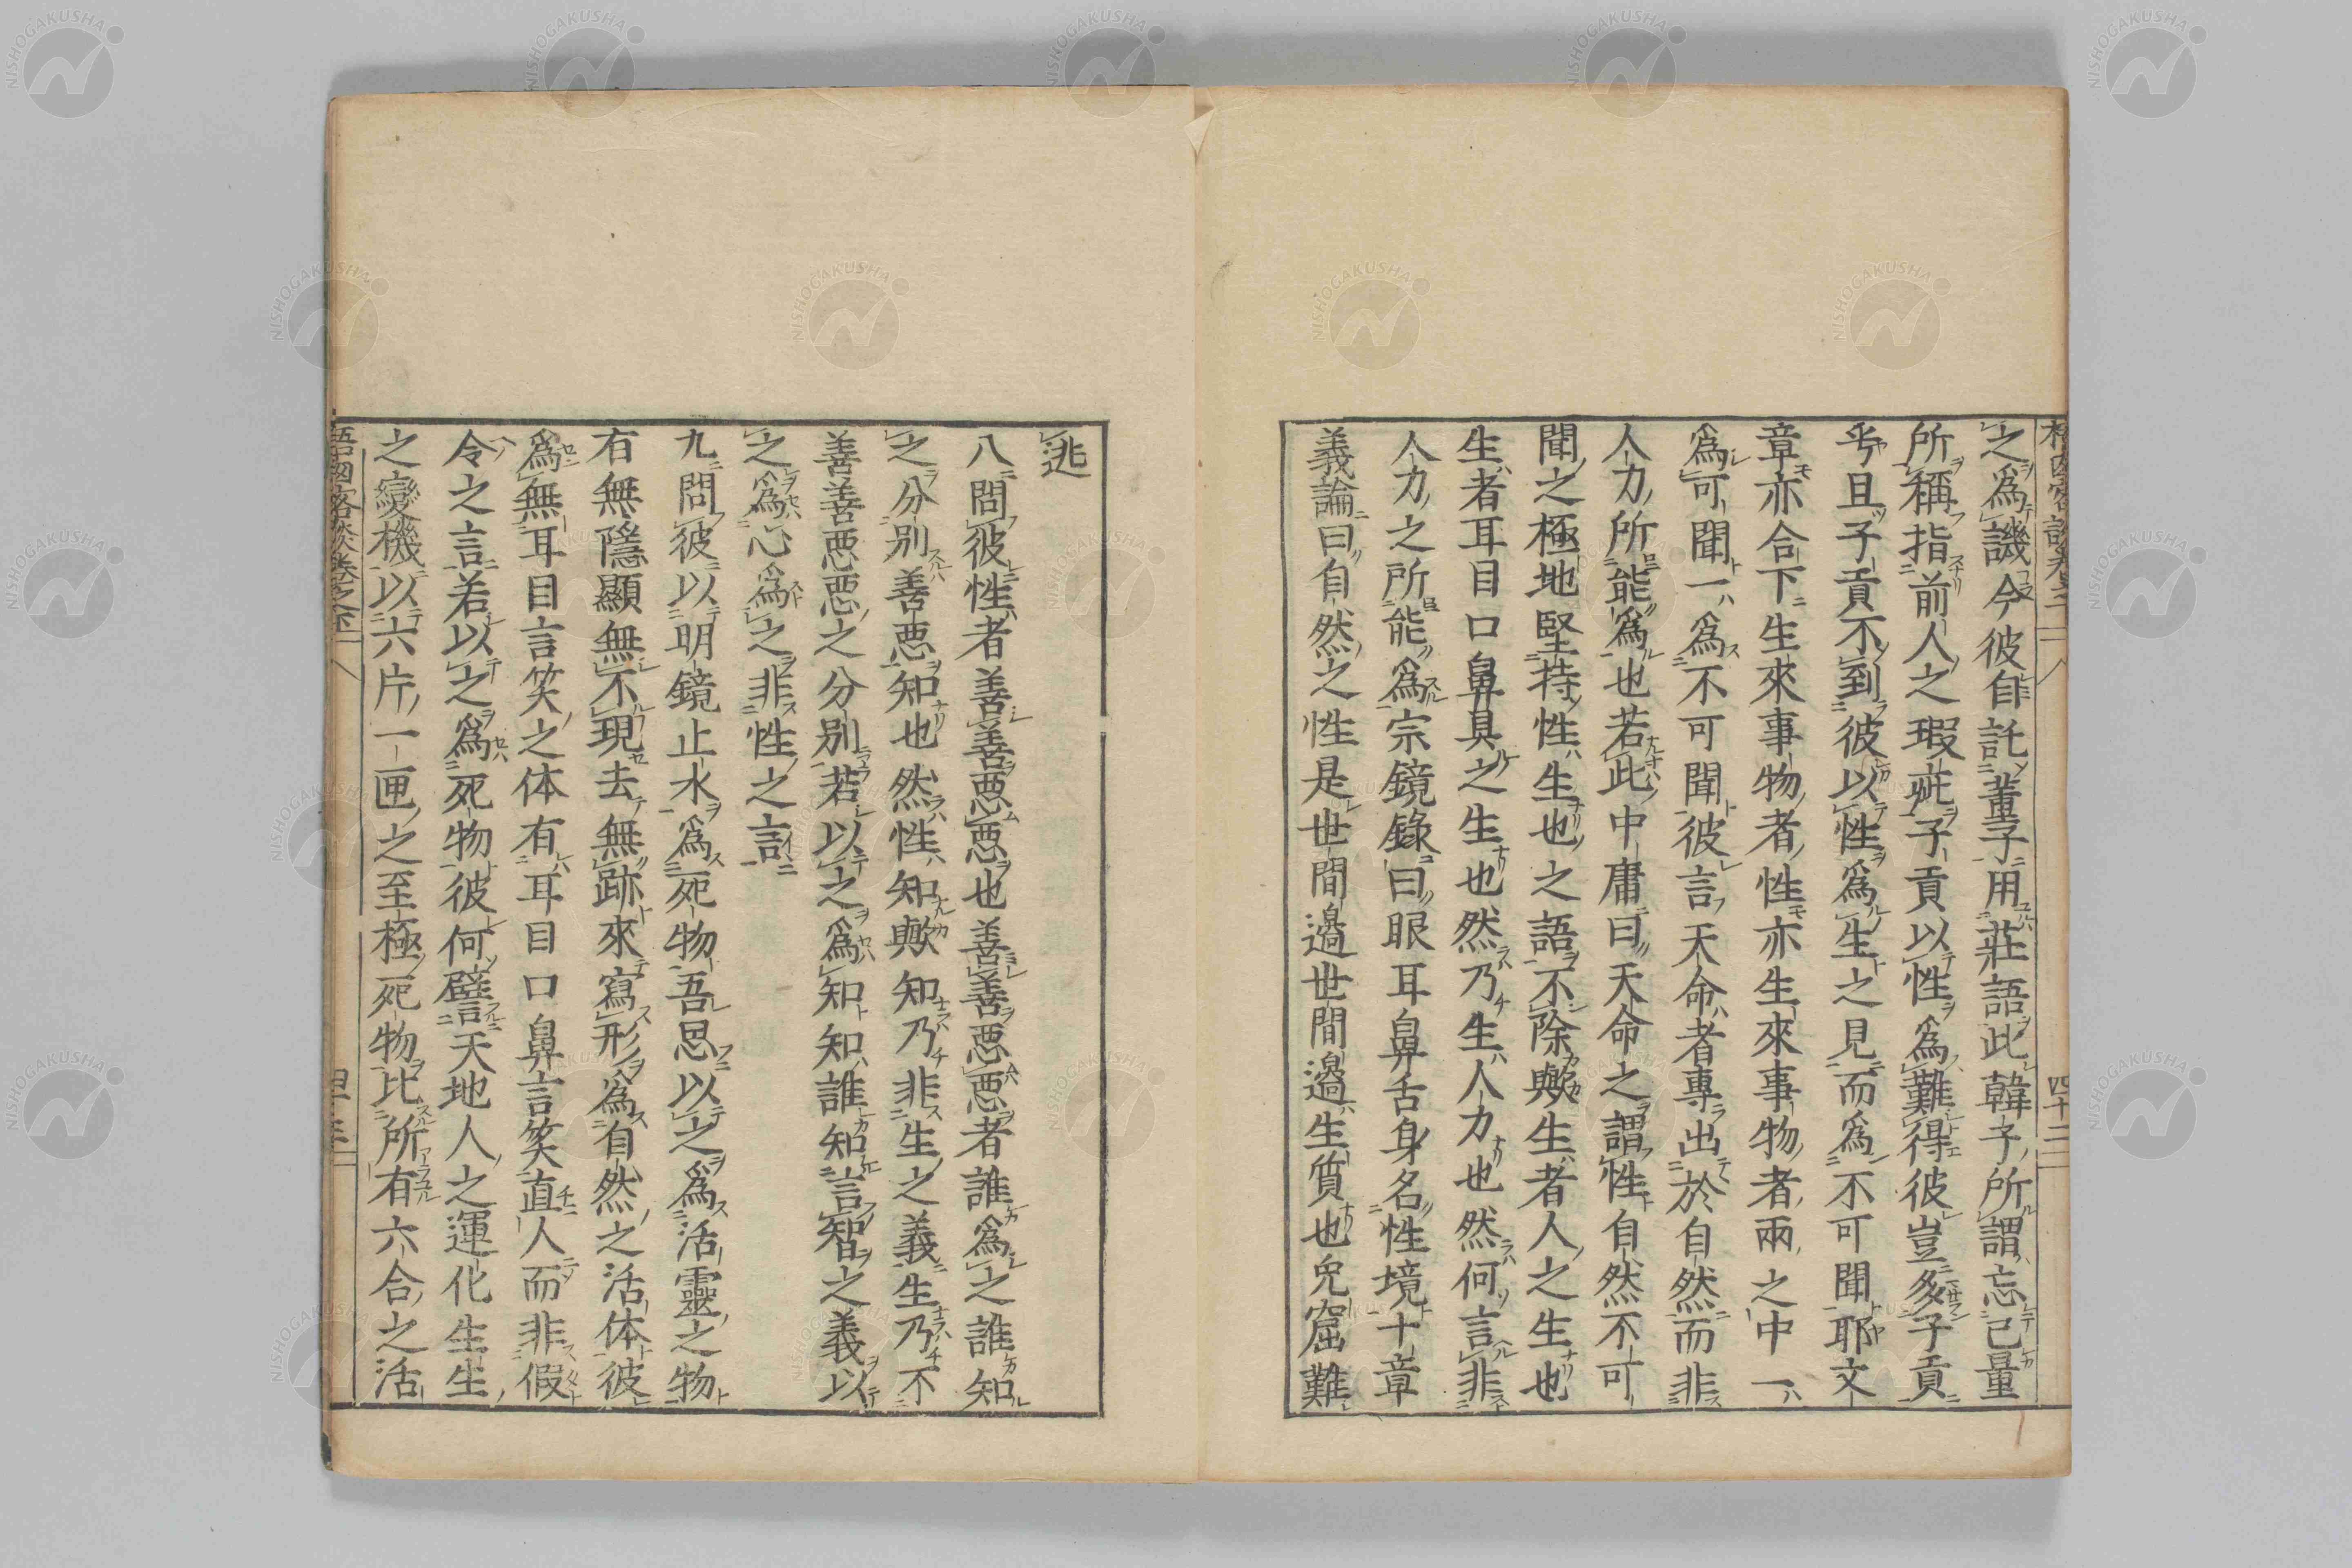 之爲譏今彼自託董子用莊語此韓子所謂忘己量
所稱指前人之瑕疵子貢以性爲難得彼豈多子貢
乎且子貢不到彼以性爲生之見而爲不可聞耶文
章亦合下生來事物者性亦生來事物者兩之中一
爲可聞一爲不可聞彼言天命者專出於自然而非
人力所能爲也若此中庸曰天命之謂性自然不可
聞之極地堅持性生也之語不除歟生者人之生也
生者耳目口鼻具之生也然乃生人力也然何言非
人力之所能爲宗鏡錄曰眼耳鼻舌身名性境十章
義論曰自然之性是世間邉世間邉生質也兔窟難
四十二
逃
八問彼性者善善惡惡也善善惡惡者誰爲之誰知
之分別善惡知也然性知歟知乃非生之義生乃不
善善惡惡之分別若以之爲知知誰知言智之義以
之爲心爲之非性之言
九問彼以明鏡止水爲死物吾思以之爲活靈之物
有無隱顯無不現去無跡來寫形爲自然之活体彼
爲無耳目言笑之体有耳目口鼻言笑直人而非假
令之言若以之爲死物彼何譬天地人之運化生生
之變機以六片一匣之至極死物比所有六合之活
NISHOGAKUSHA